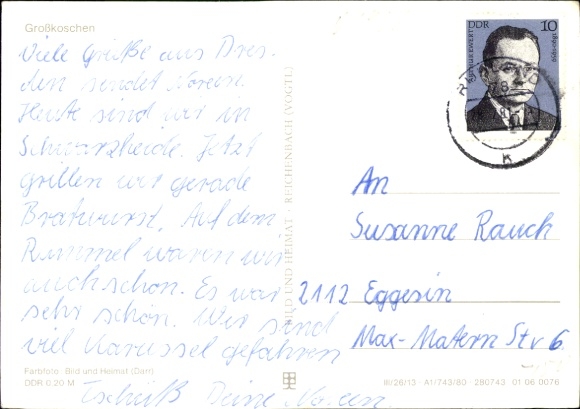 Großkoschen
Viele Grüße aus Dres-
den sendet Noreen.
Heute sind wir in
Schwarzheide. Jetzt
grillen wir gerade
Bratwurst. Auf dem
Rummel waren wir
auch schon. Es war
sehr schön. Wir sind
viel Karussel gefahren
Tschüß Deine Noreen.
Farbfoto: Bild und Heimat (Darr)
DDR 0,20 M
BILD UND HEIMAT · REICHENBACH (VOGTL)
DDR
10
K
An
Susanne Rauch
2112 Eggesin
Max-Matern Str 6
III/26/13 A1/743/80 280743 01 06 0076